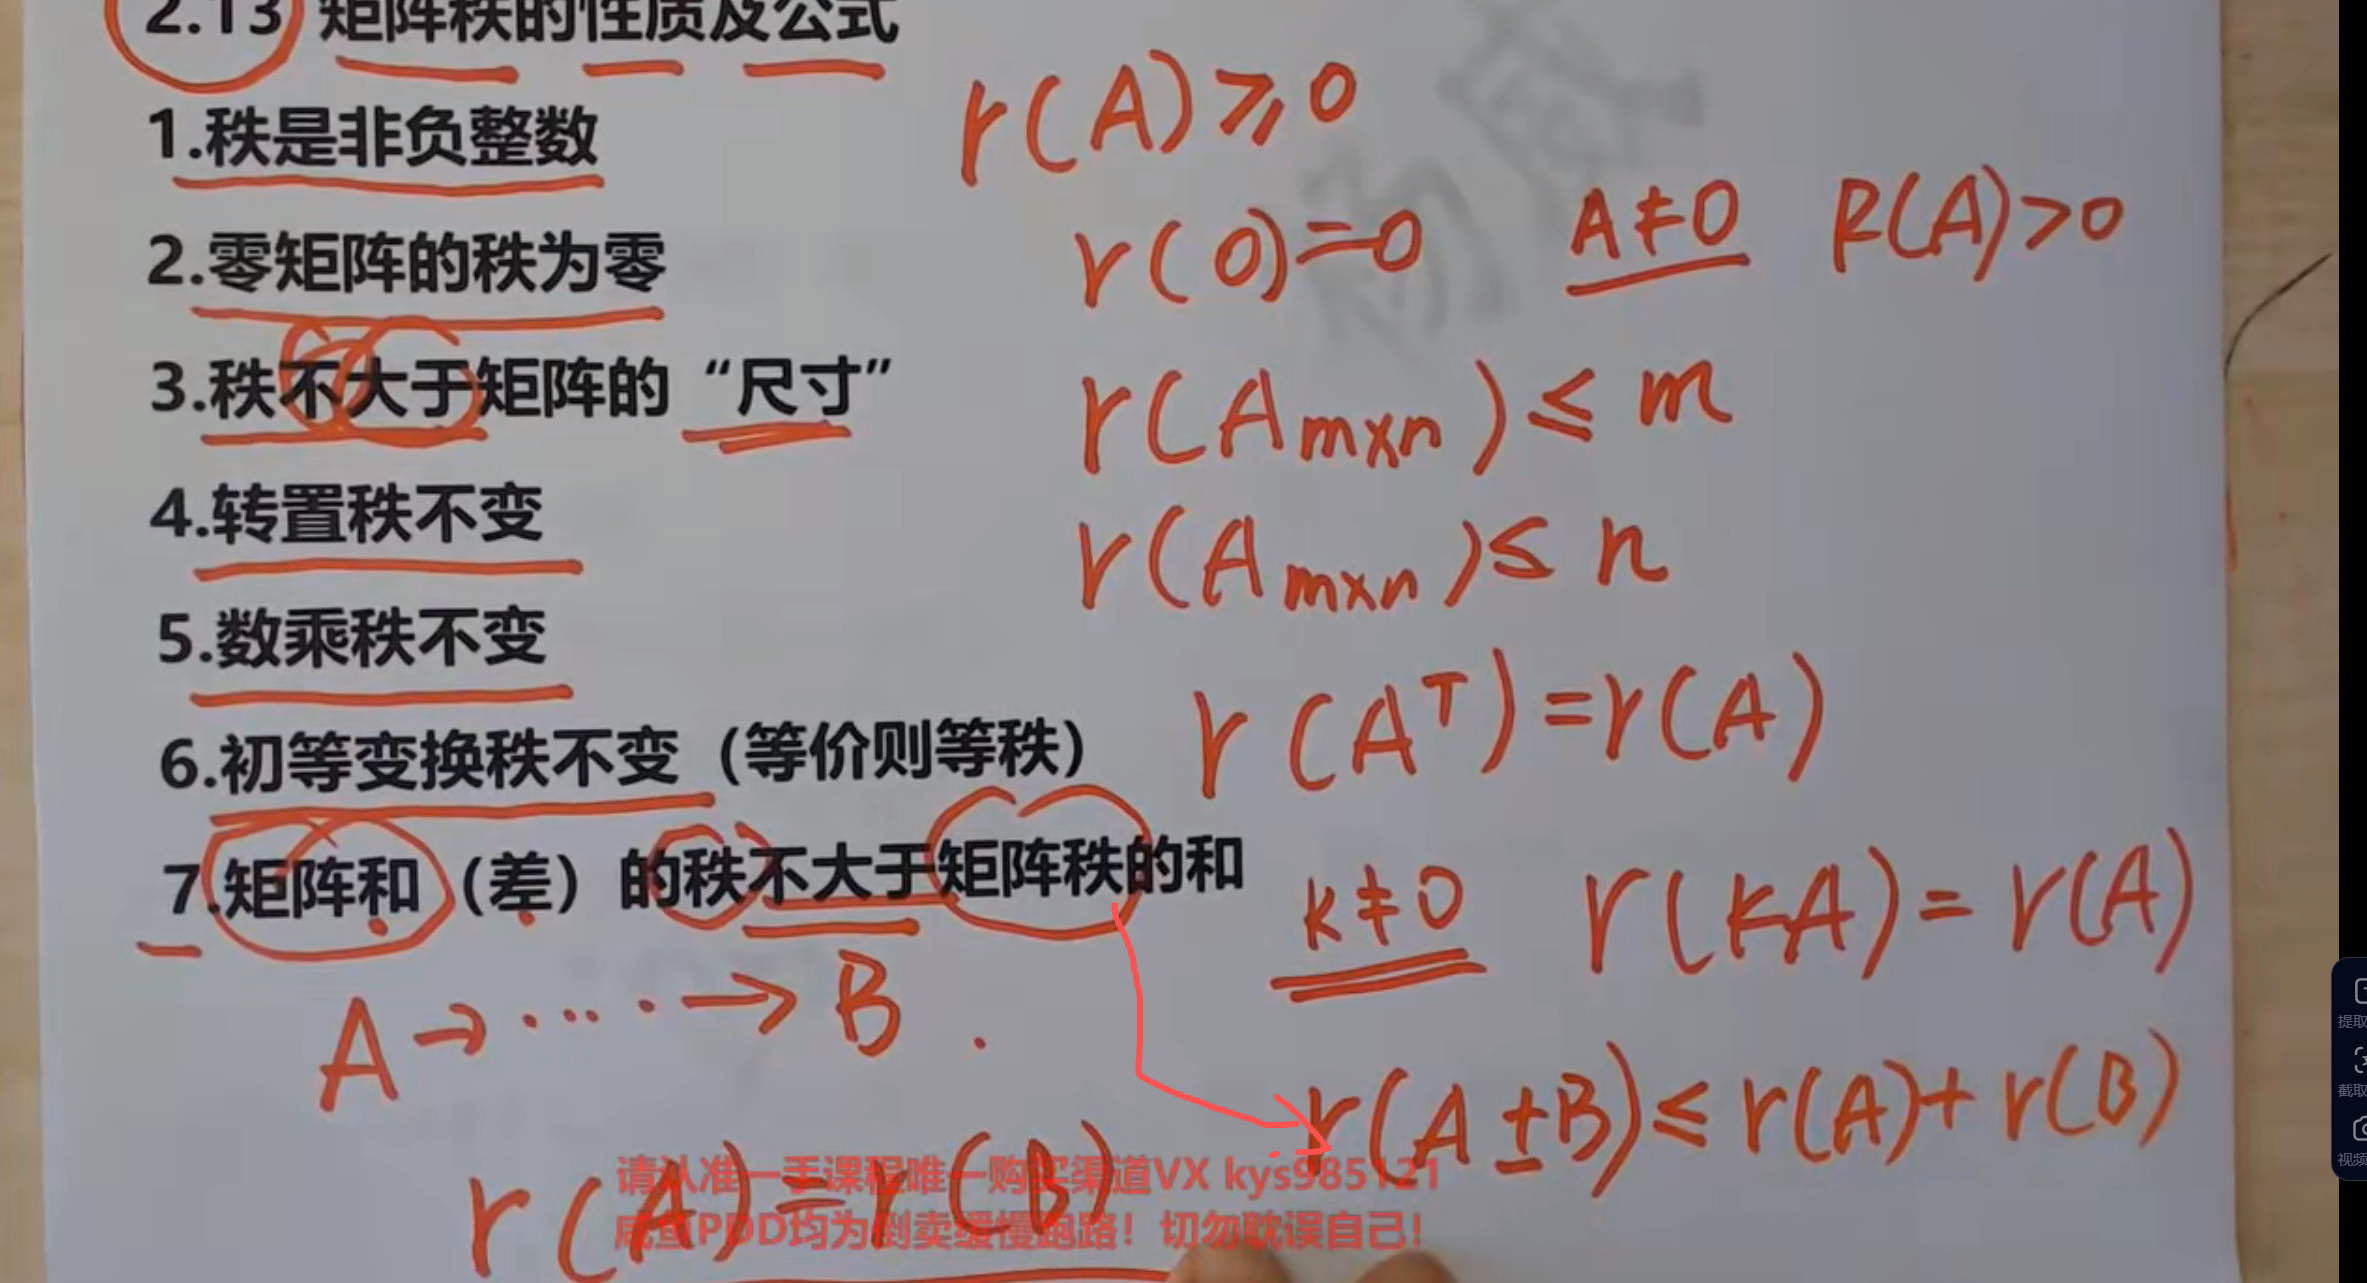 2.13 矩阵秩的性质及公式
r(A)≥0
1.秩是非负整数
r(0)=0 A≠0 R(A)>0
2.零矩阵的秩为零
3.秩不大于矩阵的“尺寸”
r(Am×n)≤m
4.转置秩不变
r(Am×n)≤n
5.数乘秩不变
r(Aᵀ)=r(A)
6.初等变换秩不变（等价则等秩）
7.矩阵和（差）的秩不大于矩阵秩的和
k≠0 r(kA)=r(A)
A→·····→B.
r(A±B)≤r(A)+r(B)
r(A)=r(B)
请认准一手课程唯一购买渠道VX kys985121
咸鱼PDD均为倒卖缓慢跑路！切勿耽误自己！
提取
截取
视频